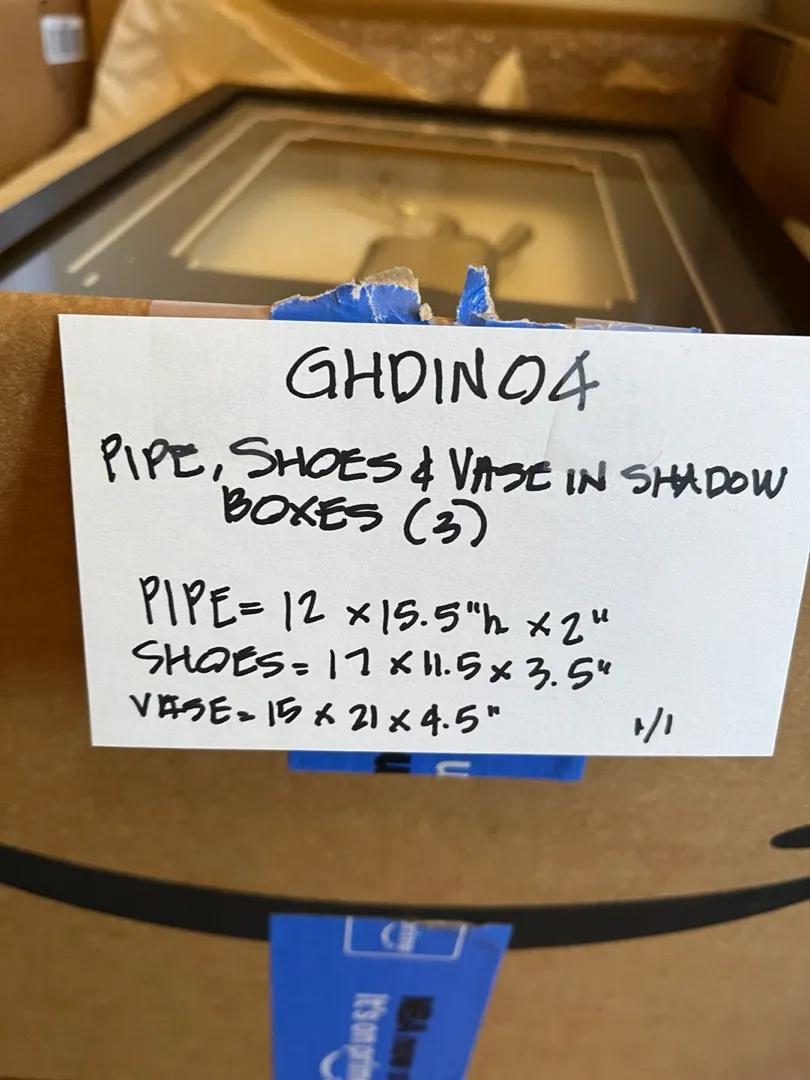 GHDIN04
PIPE, SHOES & VASE IN SHADOW
BOXES (3)
PIPE = 12 x 15.5"h x 2"
SHOES = 17 x 11.5 x 3.5"
VASE = 15 x 21 x 4.5"
1/1
It's on prime